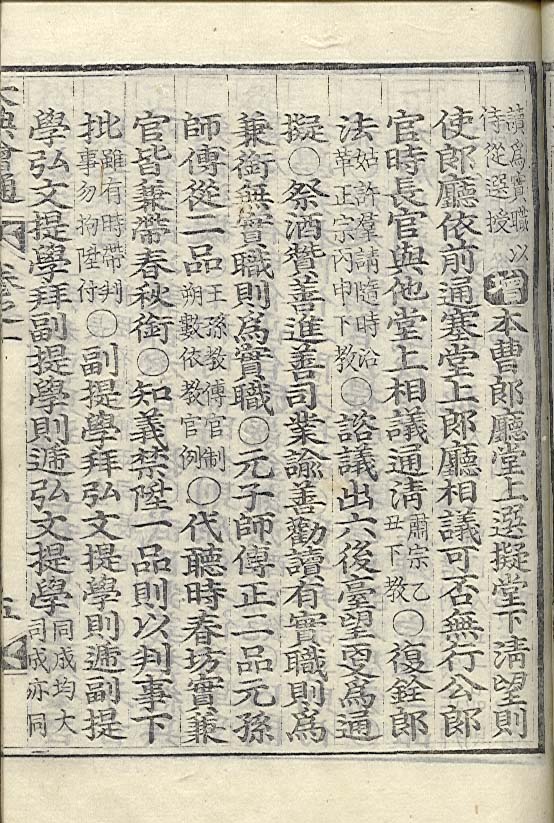 讀爲實職以
侍從選授
增本曹郎廳堂上選擬堂下淸望則
使郎廳依前通塞堂上郎廳相議可否無行公郎
官時長官與他堂上相議通淸
肅宗乙
丑下敎
○復銓郎
法
姑許羣請隨時沿
革正宗丙申下敎
○諮議出六後臺望更爲通
擬○祭酒贊善進善司業諭善勸讀有實職則爲
兼銜無實職則爲實職○元子師傅正二品元孫
師傅從二品
王孫敎傅官制
朔數依敎官例
○代聽時春坊實兼
官皆兼帶春秋銜○知義禁陞一品則以判事下
批
雖有時帶判
事勿拘陞付
○副提學拜弘文提學則遞副提
學弘文提學拜副提學則遞弘文提學
同成均大
司成亦同
大典會通 卷之一 五